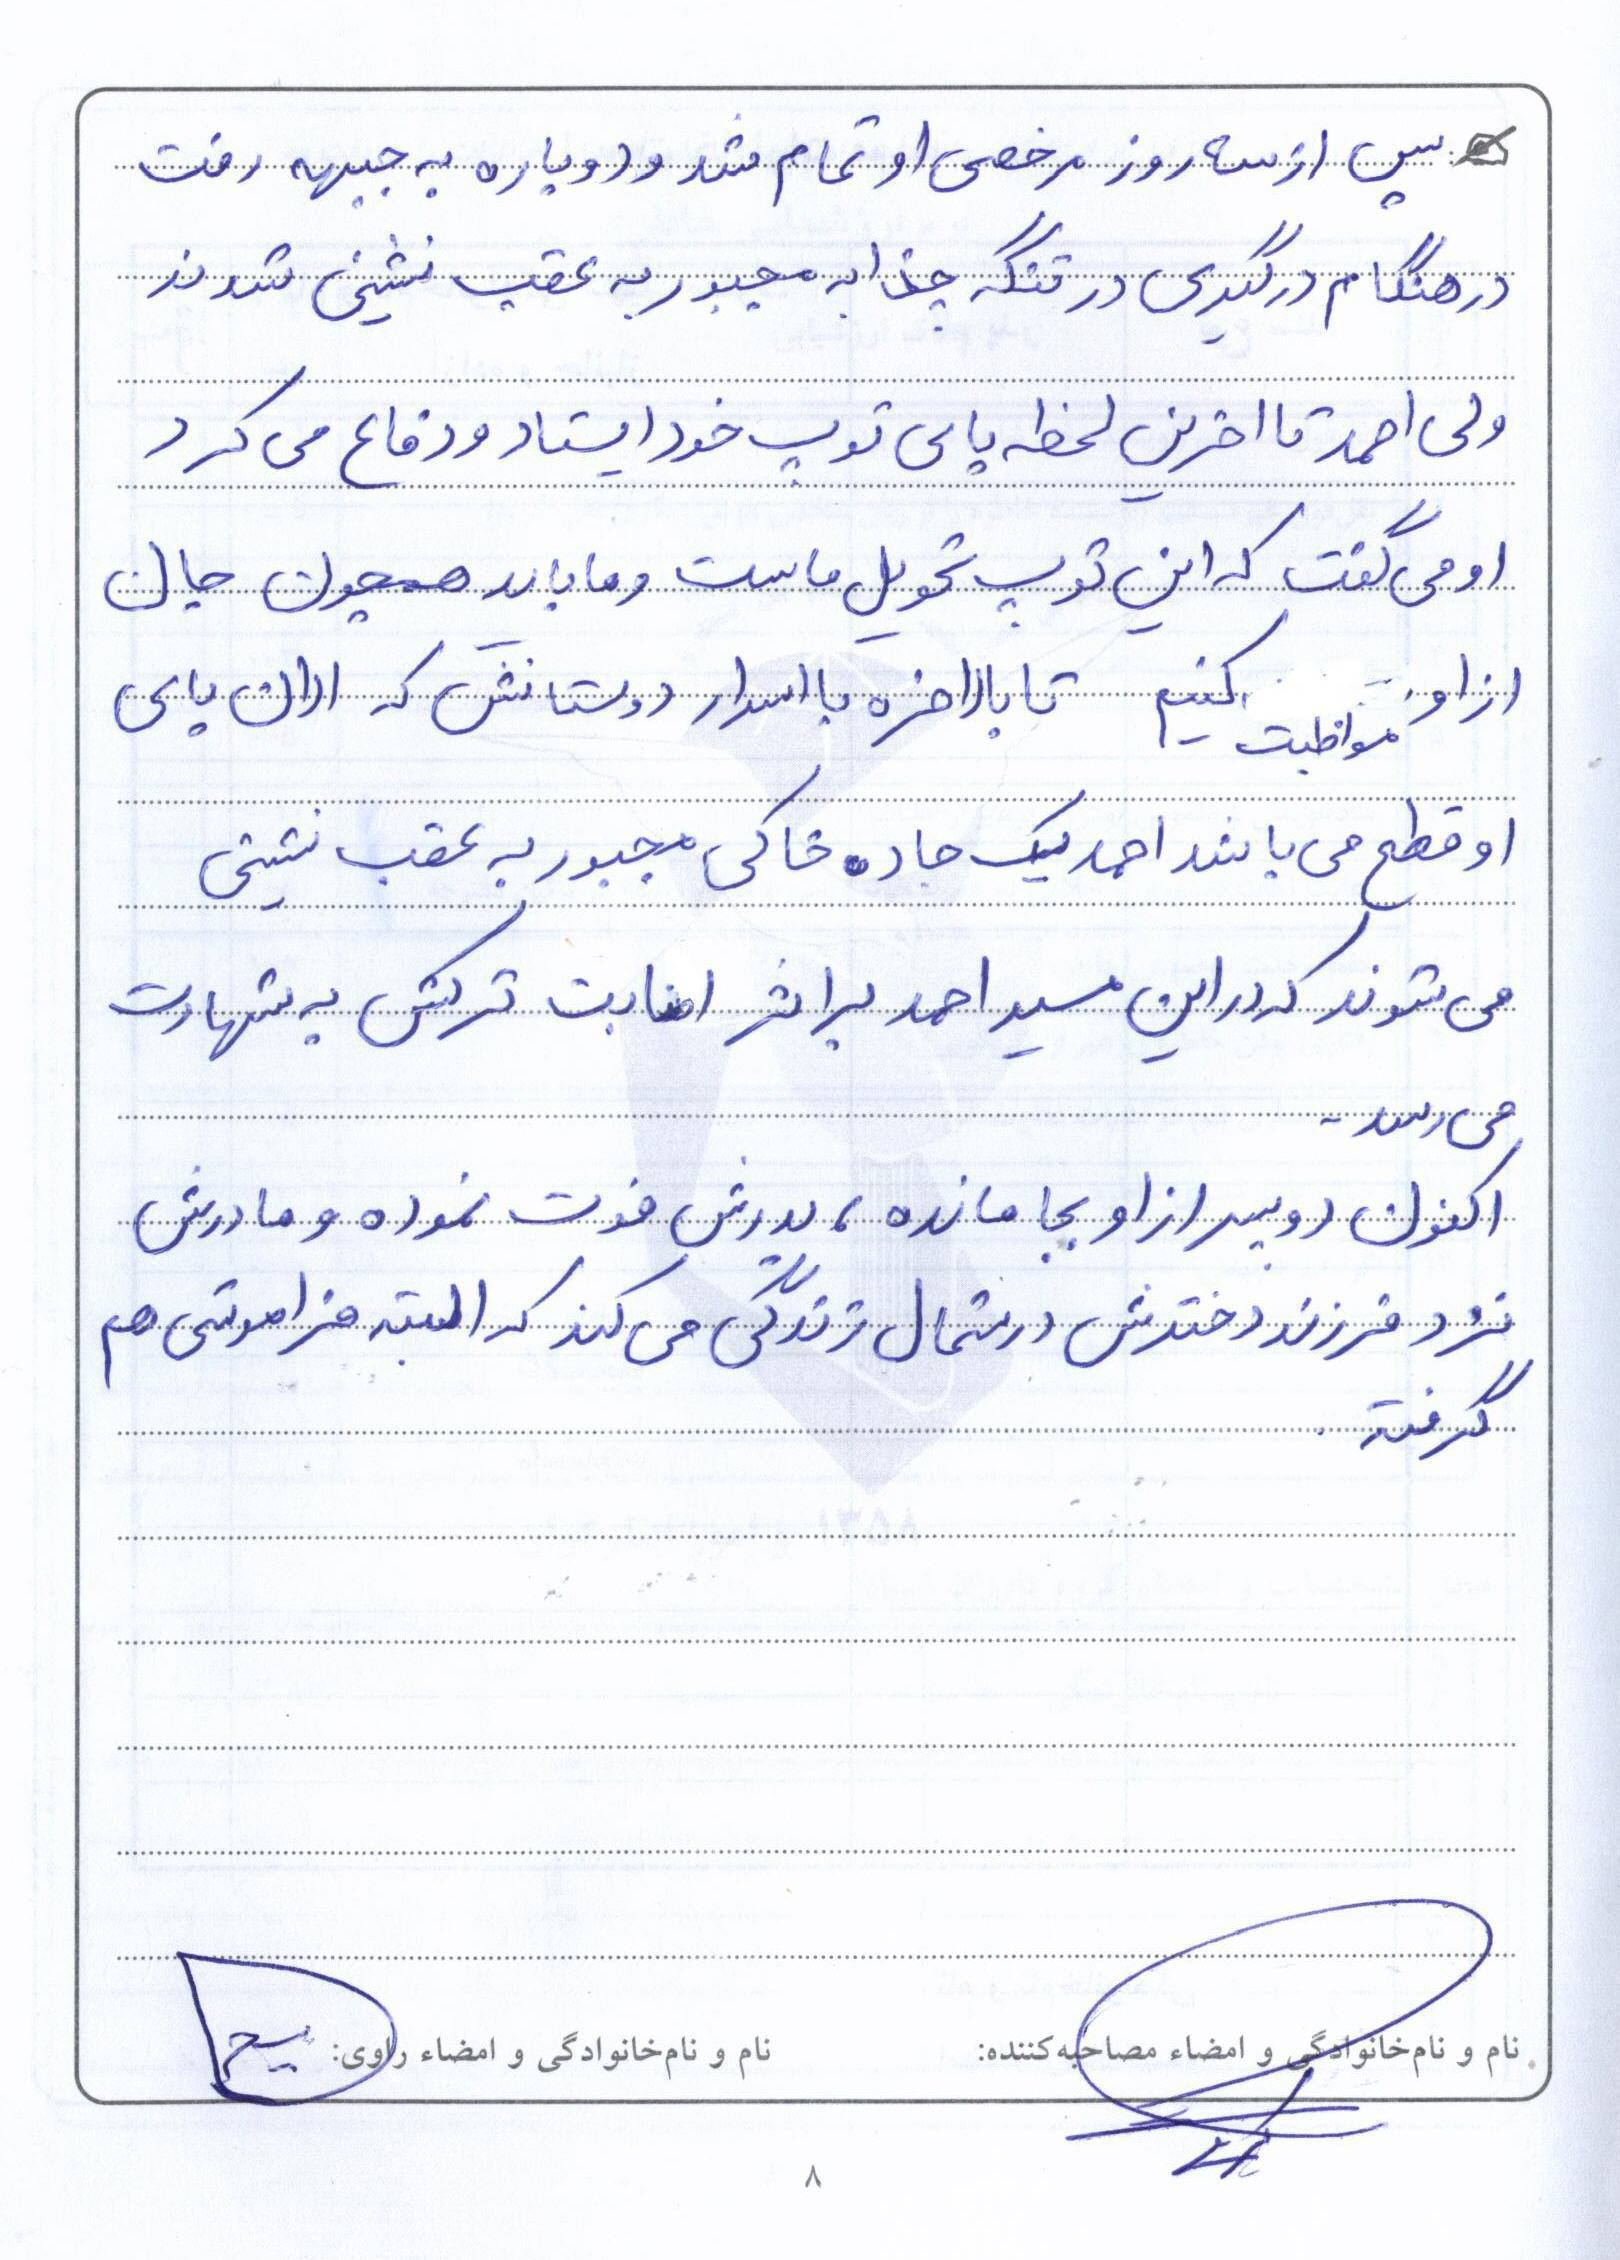 سپس از سه روز مرخصی او تمام شد و دوباره به جبهه رفت
در هنگام درگیری در تنگه چذابه مجبور به عقب نشینی شدند
ولی احمد تا اخرین لحظه پای توپ خود ایستاد و دفاع می کرد
او می گفت که این توپ تحویل ماست و ما باید همچون جان
از او مواظبت کنیم تا بالاخره با اسرار دوستانش که الان پای
او قطع می باشد احمد یک جاده خاکی مجبور به عقب نشینی
می شوند که در این مسیر احمد بر اثر اصابت ترکش به شهادت
می رسد -
اکنون دو پسر از او بجا مانده ، پدرش فوت نموده و مادرش
نزد فرزند دخترش در شمال زندگی می کند که البته فراموشی هم
گرفته .
نام و نام‌خانوادگی و امضاء مصاحبه‌کننده: نام و نام‌خانوادگی و امضاء راوی:
۸